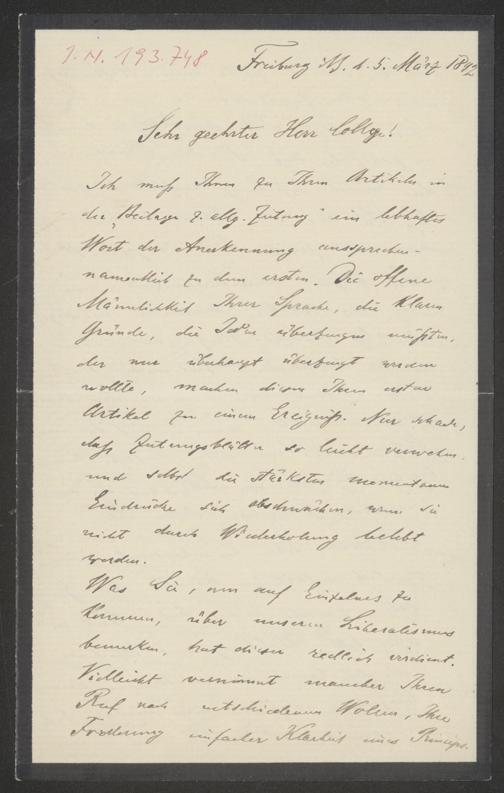 I. N. 193.748
Freiburg i/B. d. 5. März 1892
Sehr geehrter Herr College!
Ich muß Ihnen zu Ihren Artikeln in
der "Beilage z. allg. Zeitung" ein lebhaftes
Wort der Anerkennung aussprechen -
namentlich zu dem ersten. Die offene
Männlichkeit Ihrer Sprache, die klaren
Gründe, die Jeden überzeugen müßten,
der nur überhaupt überzeugt werden
wollte, machen diesen Ihren ersten
Artikel zu einem Ereigniß. Nur schade,
daß Zeitungsblätter so leicht verwehen
und selbst die stärksten momentanen
Eindrücke sich abschwächen, wenn sie
nicht durch Wiederholung belebt
werden.
Was Sie, um auf Einzelnes zu
kommen, über unseren Liberalismus
bemerken, hat dieser redlich verdient.
Vielleicht vernimmt mancher Ihren
Ruf nach entschiedenem Wollen, Ihre
Forderung einfacher Klarheit eines Princips.